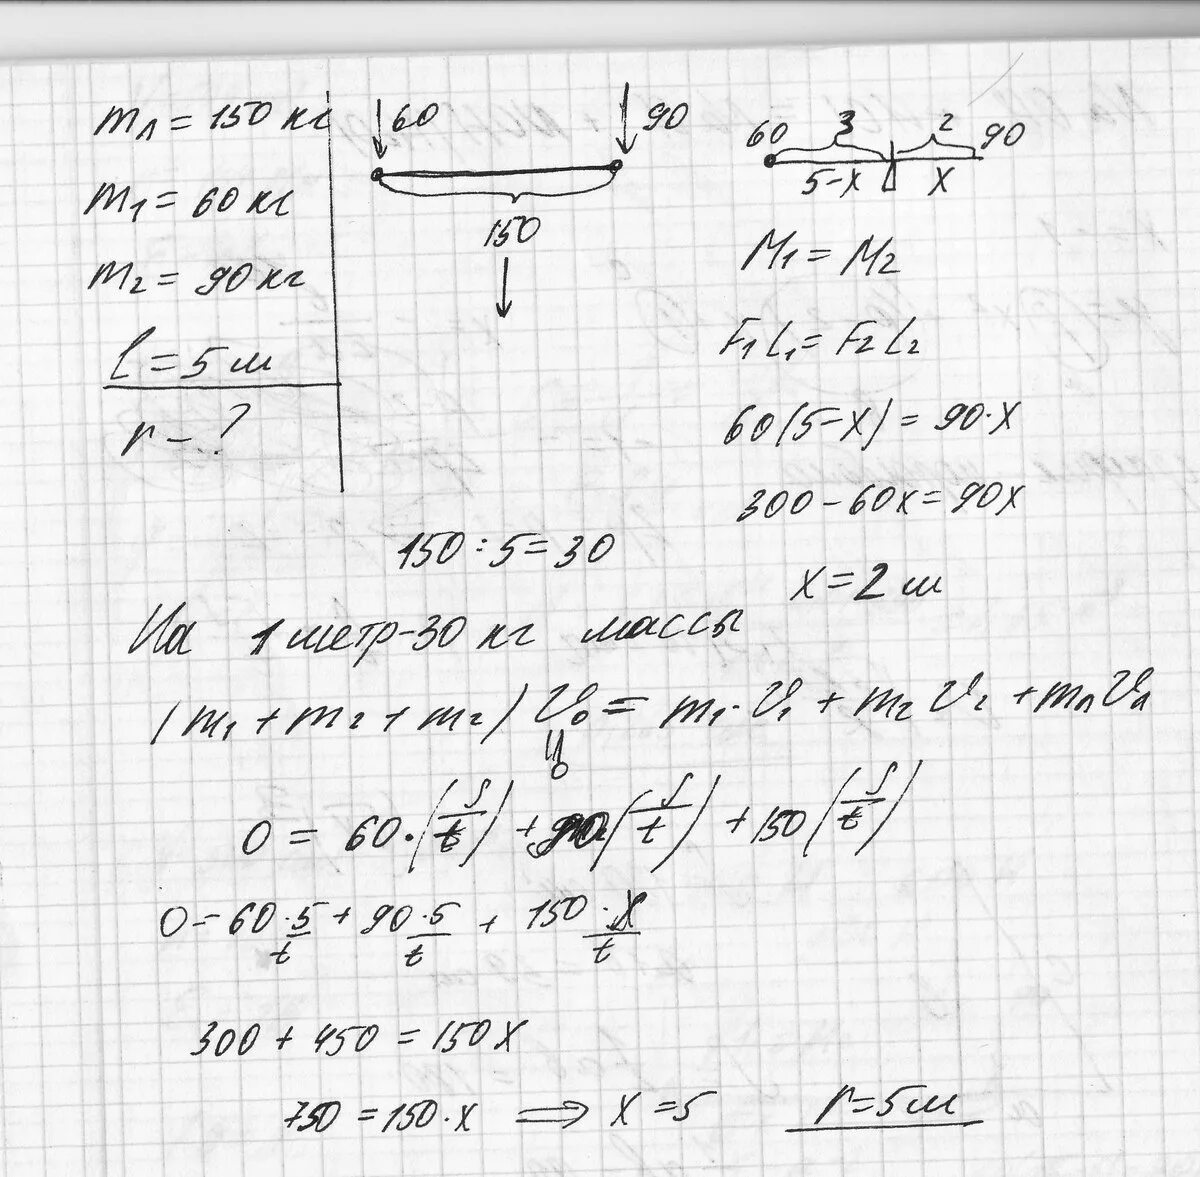 mл = 150 кг
m1 = 60 кг
m2 = 90 кг
l = 5 м
r - ?
60
90
150
60 3 2 90
5-x x
M1 = M2
F1 l1 = F2 l2
60(5-x) = 90·x
300 - 60x = 90x
x = 2 м
150 : 5 = 30
На 1 метр - 30 кг массы
(m1 + m2 + m2) V0 = m1·V1 + m2 V2 + mл Vл
0
0 = 60·(S/t) + 90(S/t) + 150(S/t)
0 = 60·5/t + 90·5/t + 150·x/t
300 + 450 = 150x
750 = 150·x ⇒ x = 5
r = 5 м